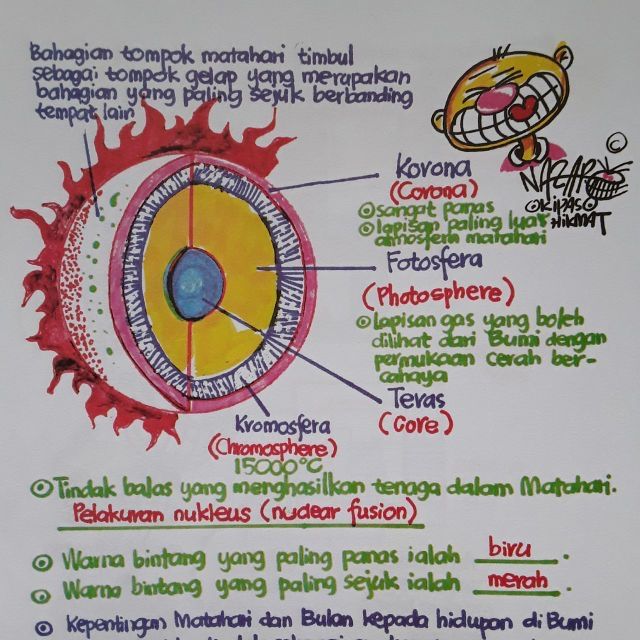 Bahagian tompok matahari timbul
sebagai tompok gelap yang merupakan
bahagian yang paling sejuk berbanding
tempat lain
©
NAZARO
KIPAS
HIKMAT
Korona
(Corona)
sangat panas
lapisan paling luar
atmosfera matahari
Fotosfera
(Photosphere)
lapisan gas yang boleh
dilihat dari Bumi dengan
permukaan cerah ber-
cahaya
Teras
(Core)
Kromosfera
(Chromosphere)
15000°C
Tindak balas yang menghasilkan tenaga dalam Matahari.
Pelakuran nukleus (nuclear fusion)
Warna bintang yang paling panas ialah biru.
Warna bintang yang paling sejuk ialah merah.
Kepentingan Matahari dan Bulan kepada hidupan di Bumi